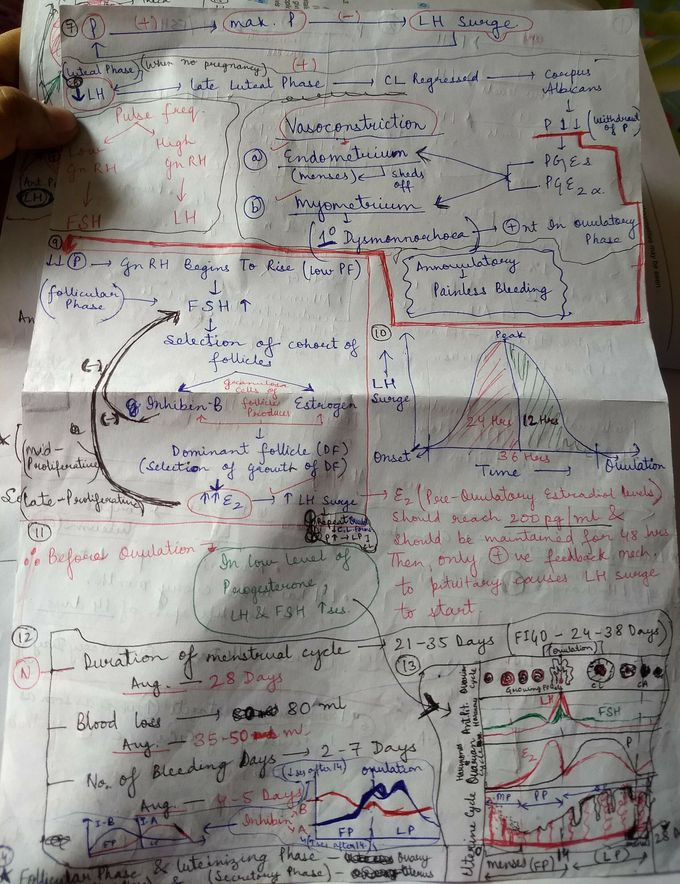 ⑦ P (+) → max. P (-) → LH Surge.
(Luteal Phase) (When no pregnancy) (+)
↓ LH ← late Luteal Phase → CL Regressed → Corpus Albicans
Pulse freq.
Low GnRH
High GnRH
FSH
LH
P ↓↓ (withdrawl of P)
Vasoconstriction
(a) Endometrium
(menses) ← sheds off
(b) Myometrium
PGEs
PGE2 α.
(1° Dysmennorhoea) → (+)nt In ovulatory Phase
Annovulatory
Painless Bleeding
Ant P.
(LH)
⑨
↓↓ (P) → GnRH Begins To Rise (low PF)
(follicular Phase)
FSH ↑
Selection of cohort of
follicles
(-) (-)
Granulosa cells of follicle Produces
Inhibin-B Estrogen
Dominant follicle (DF)
(Selection of growth of DF)
(mid-Proliferative)
(late-Proliferative)
↑↑ E2 → ↑ LH Surge
⑩
Peak
↑ LH Surge
24 Hrs 12 Hrs
36 Hrs
Onset Time → Ovulation
→ E2 (Pre-Ovulatory Estradiol levels)
should reach 200 pg/ml &
should be maintained for 48 hrs
Then only (+)ve feedback mech.
to pituitary causes LH surge
to start.
⑪
% Before Ovulation →
In low level of
Progesterone,
LH & FSH ↑ses.
⑫
(N)
Duration of menstrual cycle → 21-35 Days (FIGO - 24-38 Days)
Avg. — 28 Days
Blood loss → 80 ml
Avg. — 35-50 ml.
No. of Bleeding Days → 2-7 Days
Avg — 4-5 Days
Inhibin B A
I-B I-A
(↓ses after 14)
Ovulation
FP LP
(↑ses after 14)
⑬
Ovarian Cycle
(Ovulation)
Growing Foll.
CL CA
Ant Pit. Hormone Cycle
LH FSH
Hormonal Ovarian Cycle
E2 P
Uterine Cycle
MP PP
menses (FP) 14 (LP) 28
Follicular Phase & Luteinizing Phase — Ovary
(Secretory Phase) — Uterus